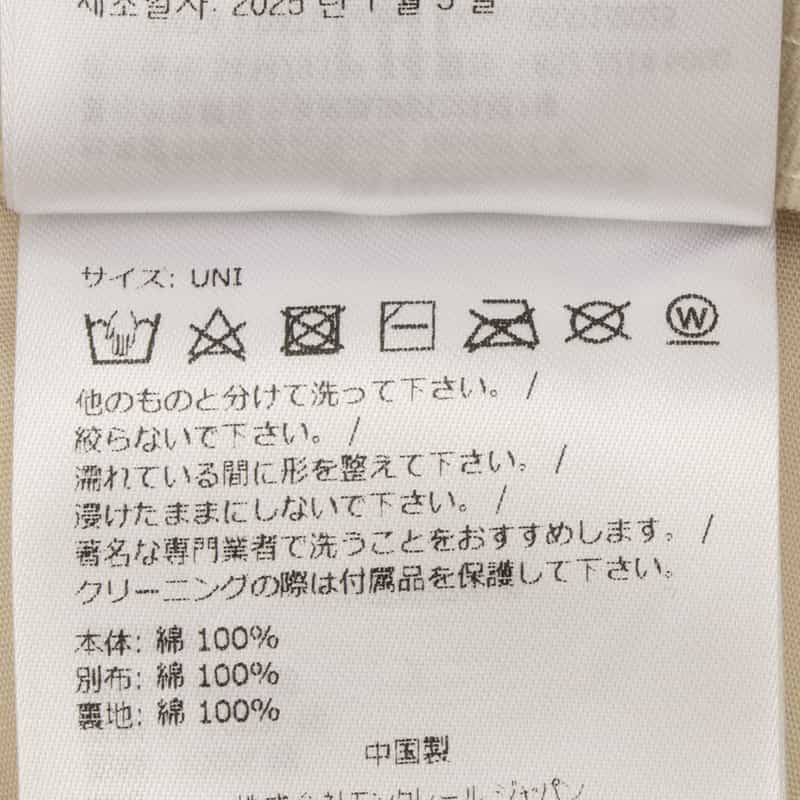 제조일자: 2025 년 1 월 5 일
サイズ: UNI
W
他のものと分けて洗って下さい。 /
絞らないで下さい。 /
濡れている間に形を整えて下さい。 /
浸けたままにしないで下さい。 /
著名な専門業者で洗うことをおすすめします。 /
クリーニングの際は付属品を保護して下さい。
本体: 綿 100%
別布: 綿 100%
裏地: 綿 100%
中国製
株式会社モンクレール ジャパン